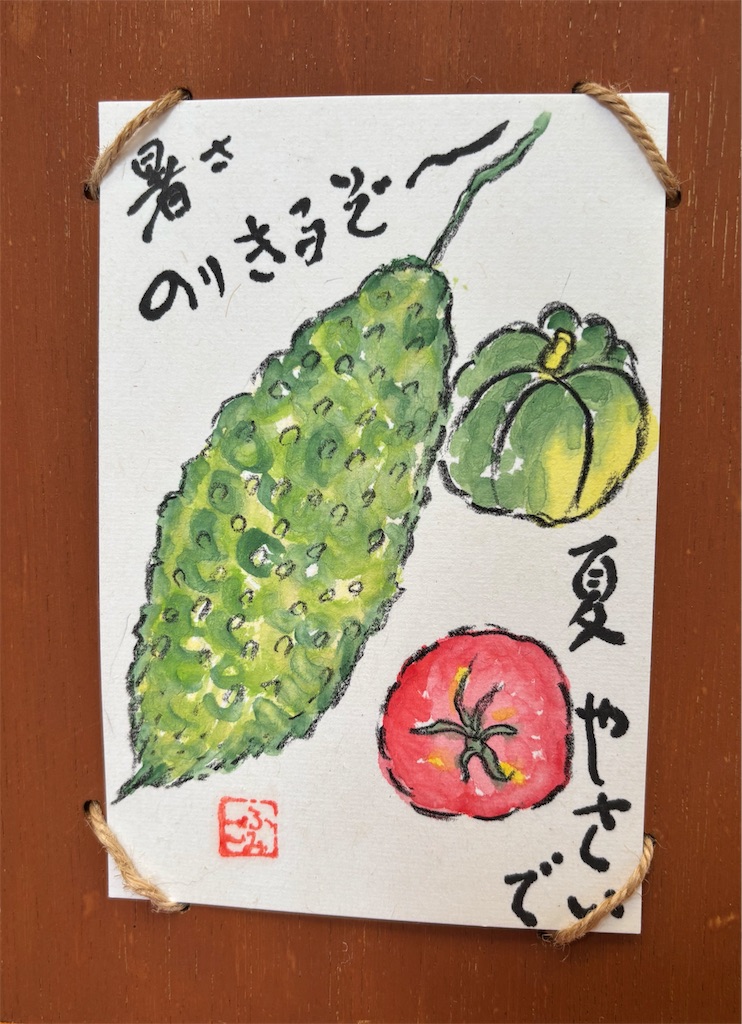 夏 やさい
で
暑さ
のりきるぞー
ふみ